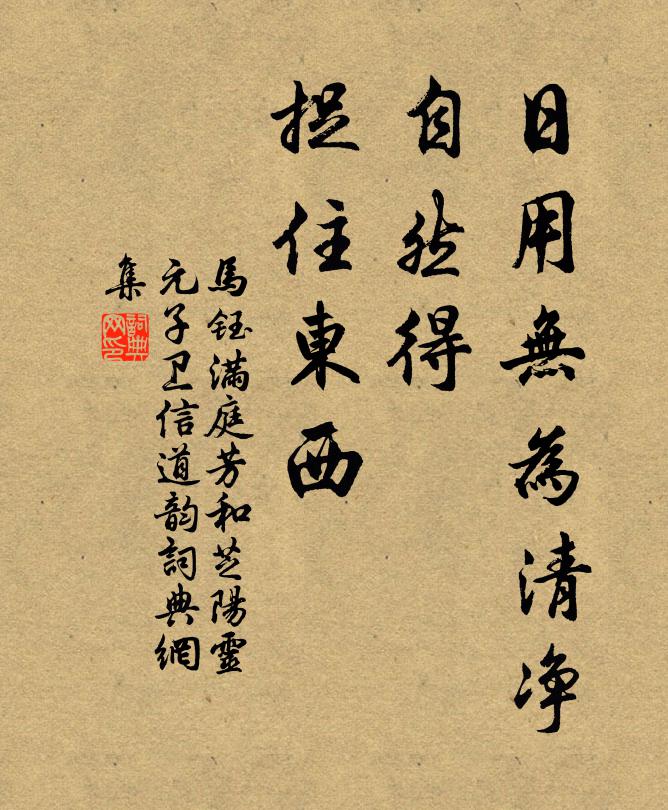 日用無為清净
自然得
捉住東西
馬鈺满庭芳和芝陽靈
元子卫信道韵詞典網
集
詞典
网印